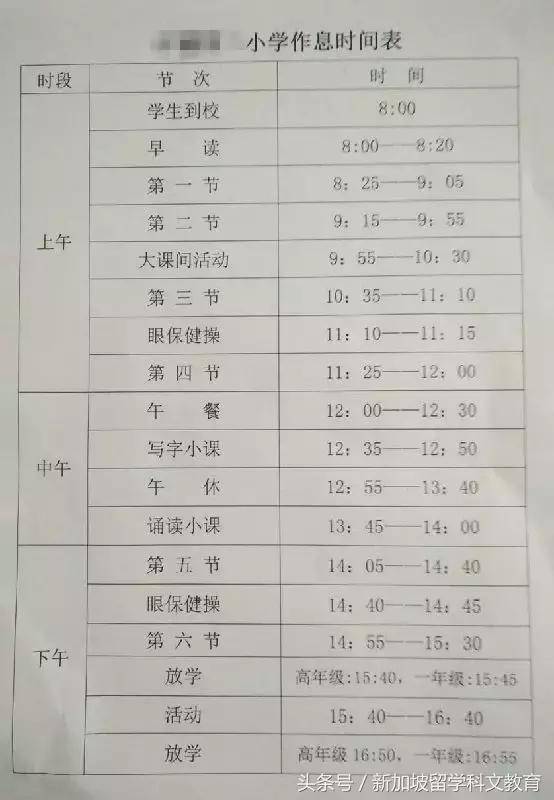 小学作息时间表
时段 节 次 时 间
上午
学生到校 8:00
早 读 8:00——8:20
第 一 节 8: 25——9: 05
第 二 节 9: 15——9: 55
大课间活动 9: 55——10: 30
第 三 节 10: 35——11: 10
眼保健操 11: 10——11: 15
第 四 节 11: 25——12: 00
中午
午 餐 12: 00——12: 30
写字小课 12: 35——12: 50
午 休 12: 55——13: 40
诵读小课 13: 45——14: 00
下午
第 五 节 14: 05——14: 40
眼保健操 14: 40——14: 45
第 六 节 14: 55——15: 30
放学 高年级:15:40, 一年级:15:45
活动 15: 40——16: 40
放学 高年级16:50, 一年级:16:55
头条号/新加坡留学科文教育